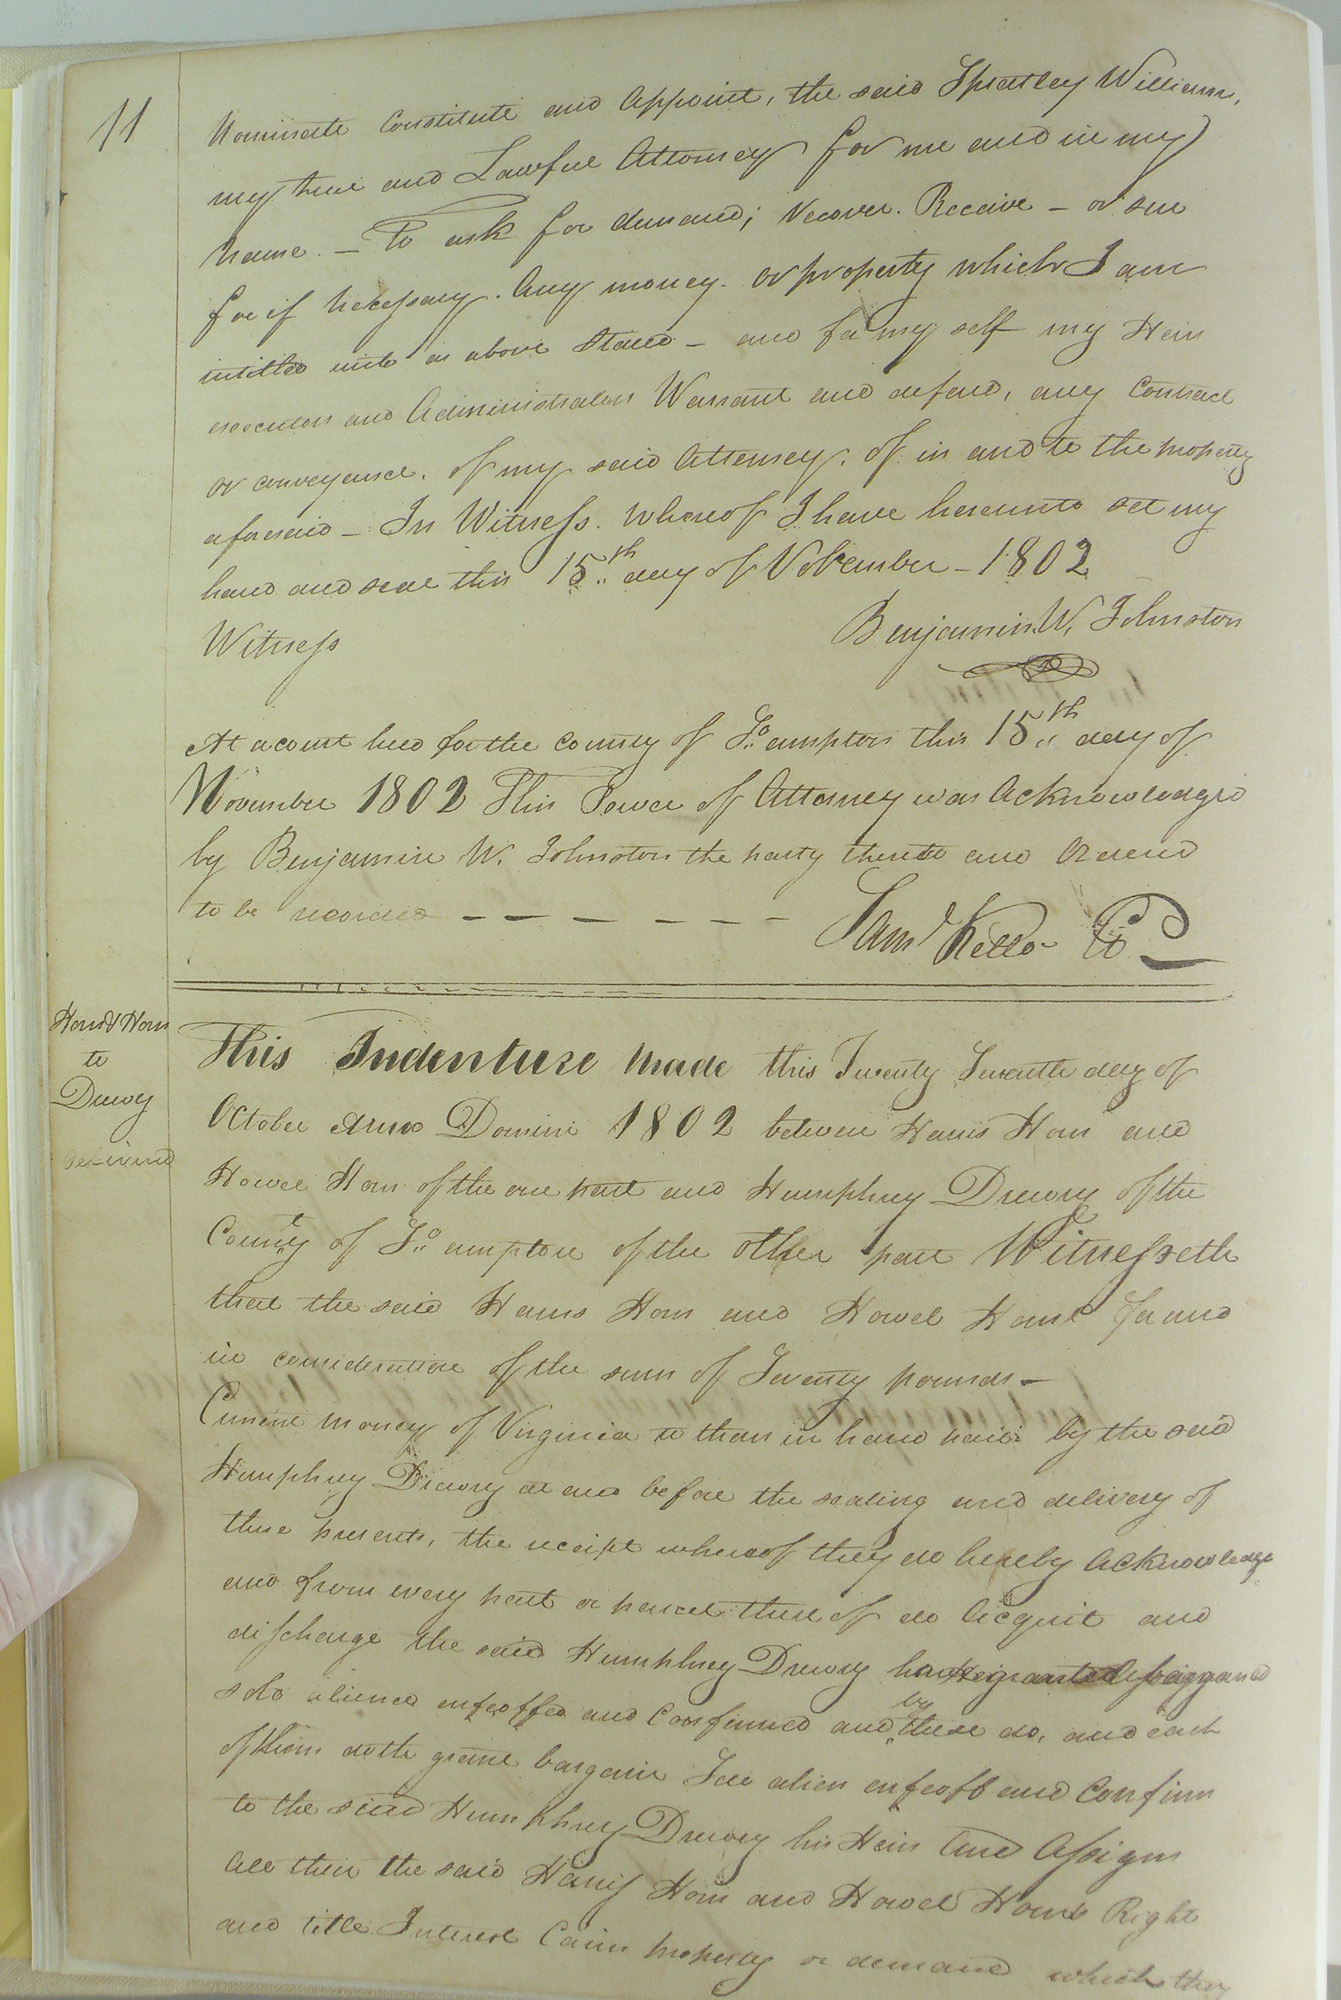 11
Nominate Constitute and Appoint, the said Spratley Williams,
my true and Lawful Attorney for me and in my
name. – To ask for demand; recover. Receive – or sue
for if necessary. Any money. or property which I am
intitled unto as above Stated – and for my self my Heirs
executors and Administrators Warrant and defend, any Contract
or conveyance. of my said Attorney. of in and to the property
aforesaid – In Witness. whereof I have hereunto set my
hand and seal this 15th day of November – 1802
Witness
Benjamin W. Johnston
At a court held for the county of So.ampton this 15th day of
November 1802 This Power of Attorney was Acknowledged
by Benjamin W. Johnston the party thereto and Ordered
to be recorded – – – – – – –
Saml Kello CC
Horn & Horn
to
Drewry
This Indenture made this Twenty Seventh day of
October Anno Domini 1802 between Harris Horn and
Howel Horn of the one part and Humphrey Drewry of the
County of So.ampton of the other part Witnesseth
that the said Harris Horn and Howel Horn for and
in consideration of the sum of Seventy pounds –
Current money of Virginia to them in hand paid by the said
Humphrey Drewry at and before the sealing and delivery of
these presents, the receipt whereof they do hereby Acknowledge
and from every part or parcel thereof do Acquit and
discharge the said Humphrey Drewry have granted bargained
sold aliened enfeoffed and Confirmed and by these do, and each
of them doth grant bargain Sell alien enfeoff and Confirm
to the said Humphrey Drewry his Heirs And Assigns
All their the said Harris Horn and Howel Horns Right
and title Interest Claim property or demand which they